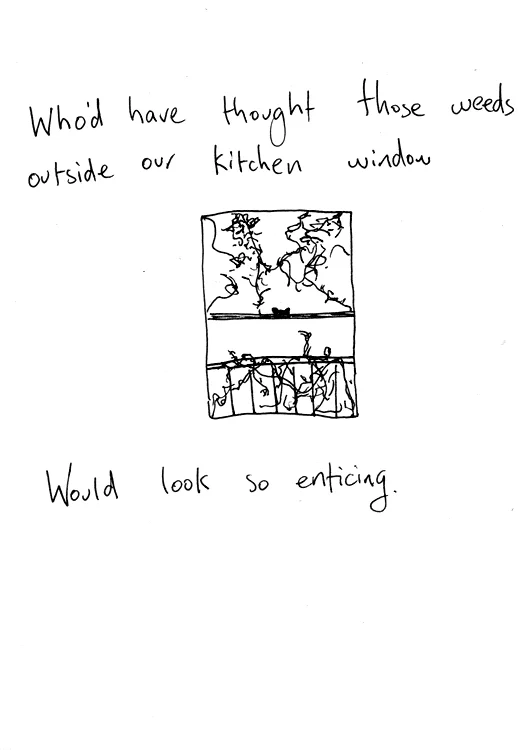 Who'd have thought those weeds
outside our kitchen window
Would look so enticing.